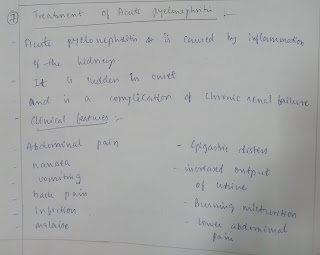 7 Treatment of Acute pyelonephritis :-
- Acute pyelonephritis is caused by inflammation
of the kidneys
- It is sudden in onset
and is a complication of chronic renal failure
- Clinical features :-
Abdominal pain
- nausea
- vomiting
- back pain
- Infection
- malaise
- Epigastric distress
- increased output
of Urine
- Burning micturition
- Lower abdominal
pain